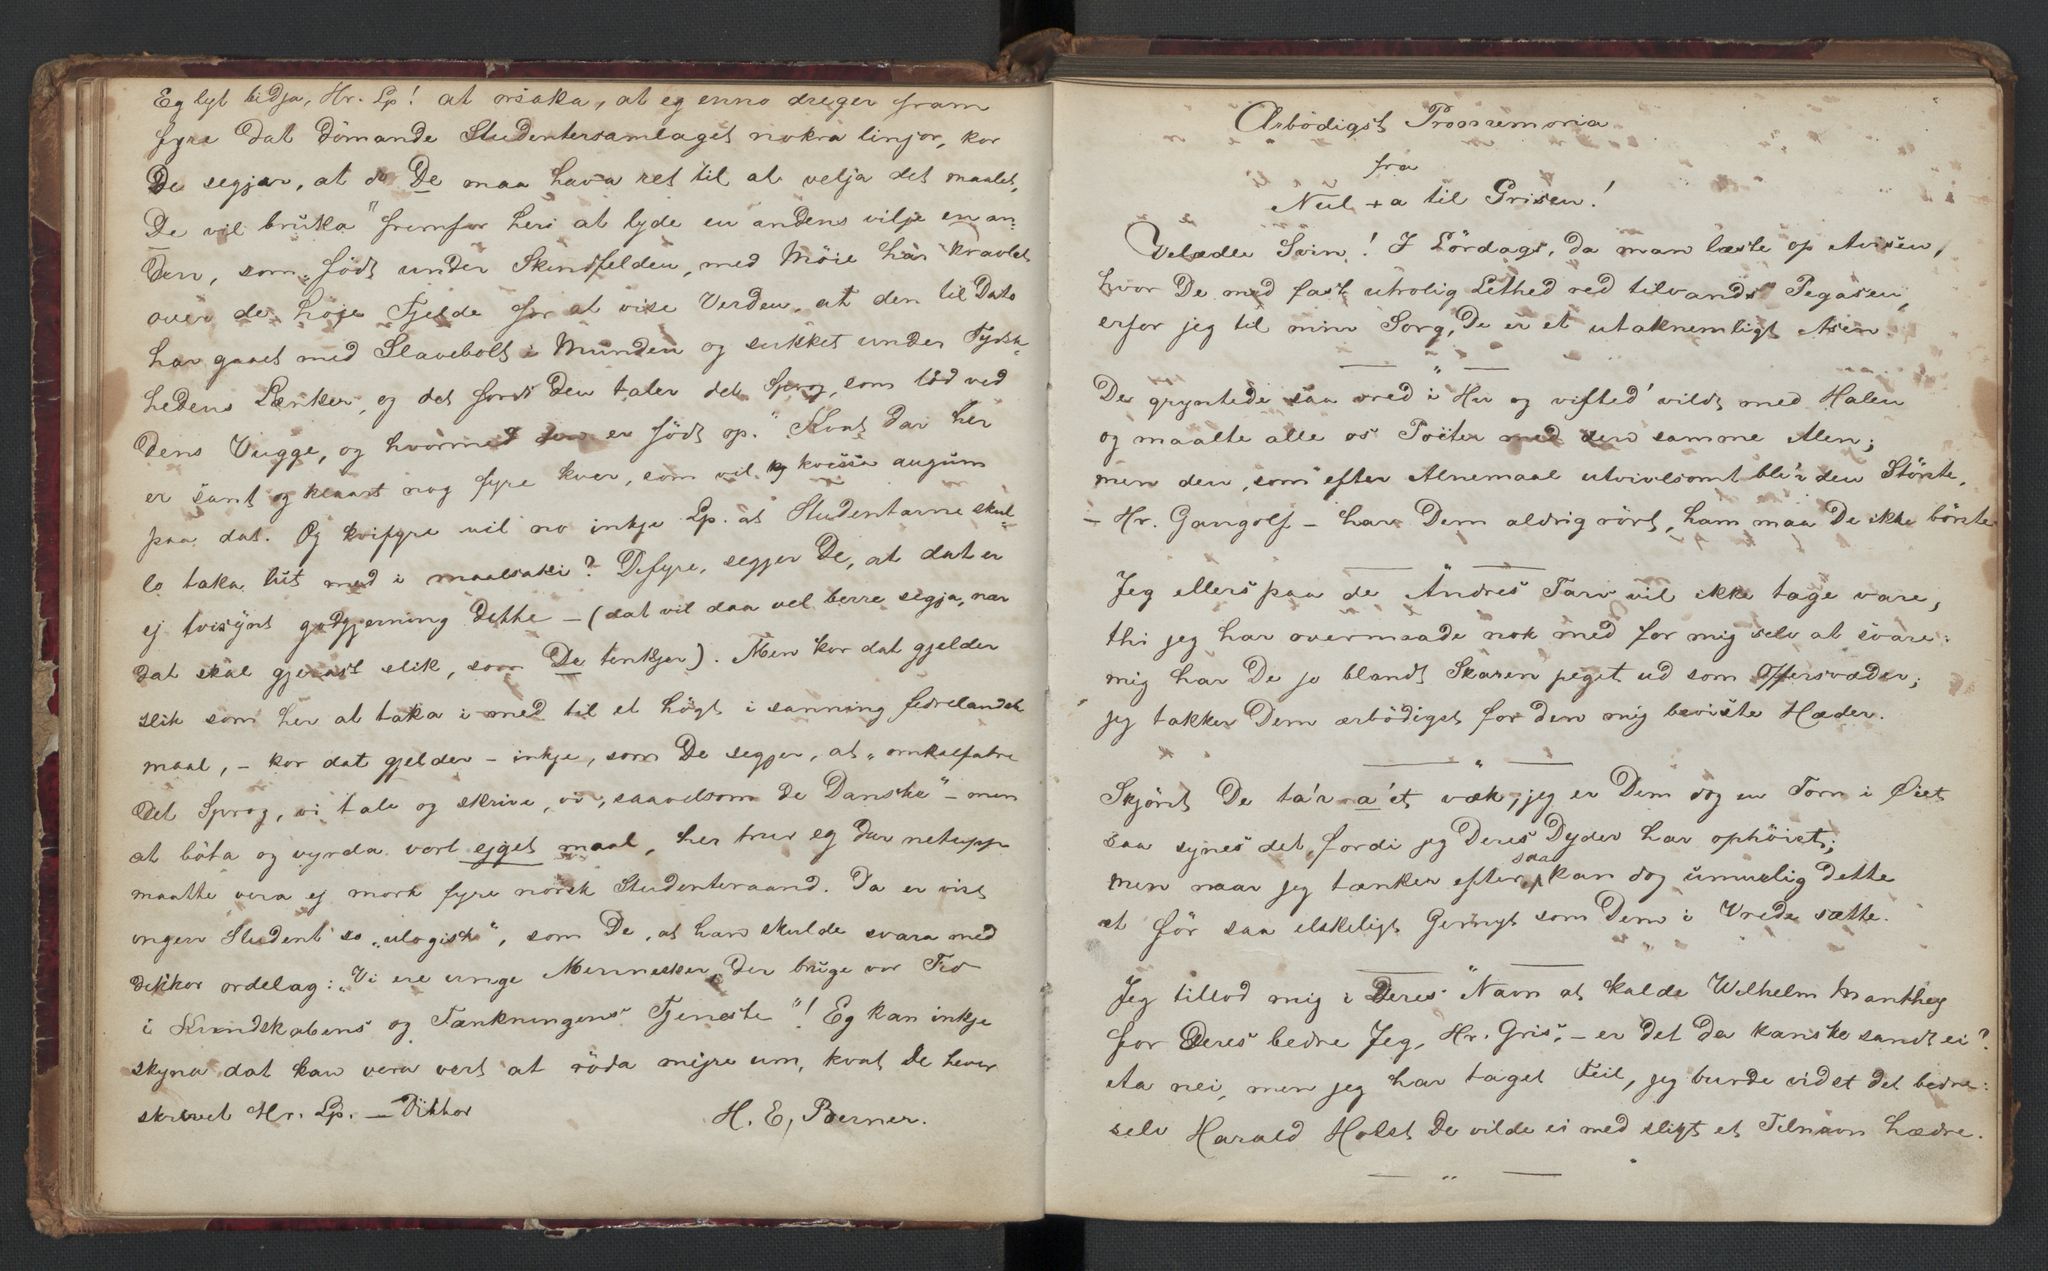 Eg lyt bidja, Hr. Lp! at orsaka, at eg enno dreger fram
fyre dat dömande Studentersamlaget nokra linjor, kor
De segjer, at De maa hava ret til at velja det maalet,
De vil bruka "fremfor heri at lyde en andens vilje en an-
den, som, födt under Skindfelden, med Möie har kravlet
over de höje Fjelde for at vise Verden, at den til Dato
har gaaet med Slavebolt i Munden og sukket under Tyrsk-
hedens Lænker, og det fordi den taler det Sprog, som löd ved
dens Vugge, og hvormed den er födt op." Kvat dar her
er sant og klaart nog fyre kver, som vil kvessa augum
paa dat. Og kvifyre vil no inkje Lp. at Studentarne skul-
lo taka lut med i maalsaki? Difyre, segjer De, at dat er
ej tvisynt godgjerning dette - (dat vil daa vel berre segja, nær
dat skal gjerast slik, som De tenkjer). Men kor dat gjelder
slik som her at taka i med til et högt i sanning fedrelandsk
maal, - kor dat gjelder - inkje, som De segjer, at "omkalfatre
det Sprog, vi tale og skrive, vi, saavelsom de Danske" - men
at böta og vynda vort ejget maal, her trur eg dar netupp
maatte vera ej mork fyre norsk Studenteraand. Da er vist
ingen Student so "ulogisk", som De, at han skulde svara med
dikkor ordelag: "Vi ere unge Mennesker, der bruge vor Tid
i Kundskabens og Tænkningens Tjeneste"! Eg kan inkje
skyna dat kan vera vert at röda mejre um, kvat De hever
skrevet Hr. Lp. - Dikkor
H. E. Berner.
Ærbödigst Promemoria
fra
Nul + a til Grisen!
Velædle Svin! I Lördags, da man læste op Avisen,
hvor De med fast utrolig Lethed red tilvands Pegasen,
erfor jeg til min Sorg, De er et utaknemligt Asen
De gryntede saa vred i Hu og vifted' vildt med Halen
og maalte alle os Poëter med den samme Alen;
men den, som efter Alnemaal utvivlsomt bli'r den Störste,
- Hr. Gangolf - har Dem aldrig rört, ham maa De ikke börste
Jeg ellers paa de Andres Tarv vil ikke tage vare,
thi jeg har overmaade nok med for mig selv at svare:
mig har De jo blandt Skaren peget ud som Offervæder;
jeg takker Dem ærbödigst for den mig beviste Hæder.
Skjönt De ta'r a'et væk, jeg er Dem dog en Torn i Øiet
saa synes det, fordi jeg Deres Dyder har ophöiet;
men naar jeg tænker efter, saa kan dog umulig dette
et för saa elskeligt Gemyt som Dem i Vrede sætte.
Jeg tillod mig i Deres Navn at kalde Wilhelm Manthey
for Deres bedre Jeg, Hr. Gris, - er det da kanske sandt ei?
Aa nei, men jeg har taget Feil, jeg burde vidst det bedre:
selv Harald Holst De vilde ei med sligt et Tilnavn hædre.